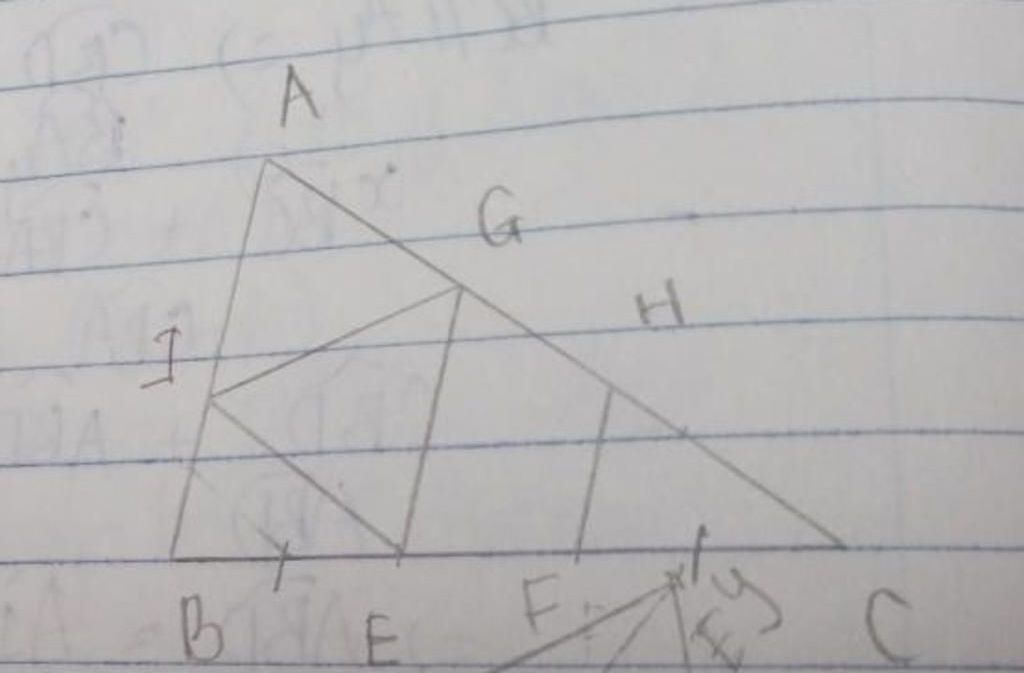 A
G
H
I
B E F C